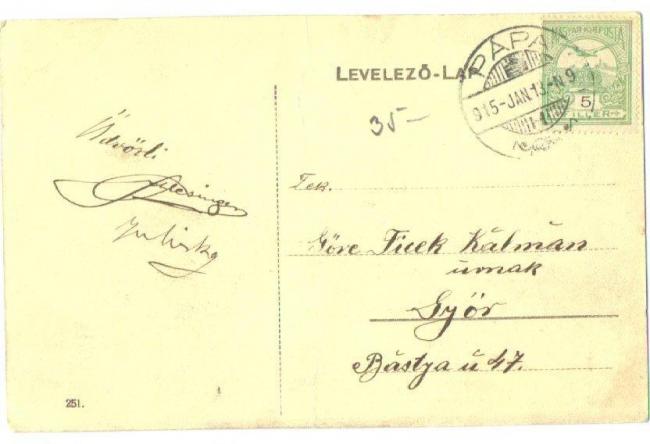 LEVELEZŐ-LAP
MAGYAR KIR. POSTA
5
FILLER
PÁPA
915-JAN.13-N.9
35-
Üdvözli
Juliska
Tek.
Göre Ficek Kálmán
úrnak
Győr
Bástya ú 47.
251.